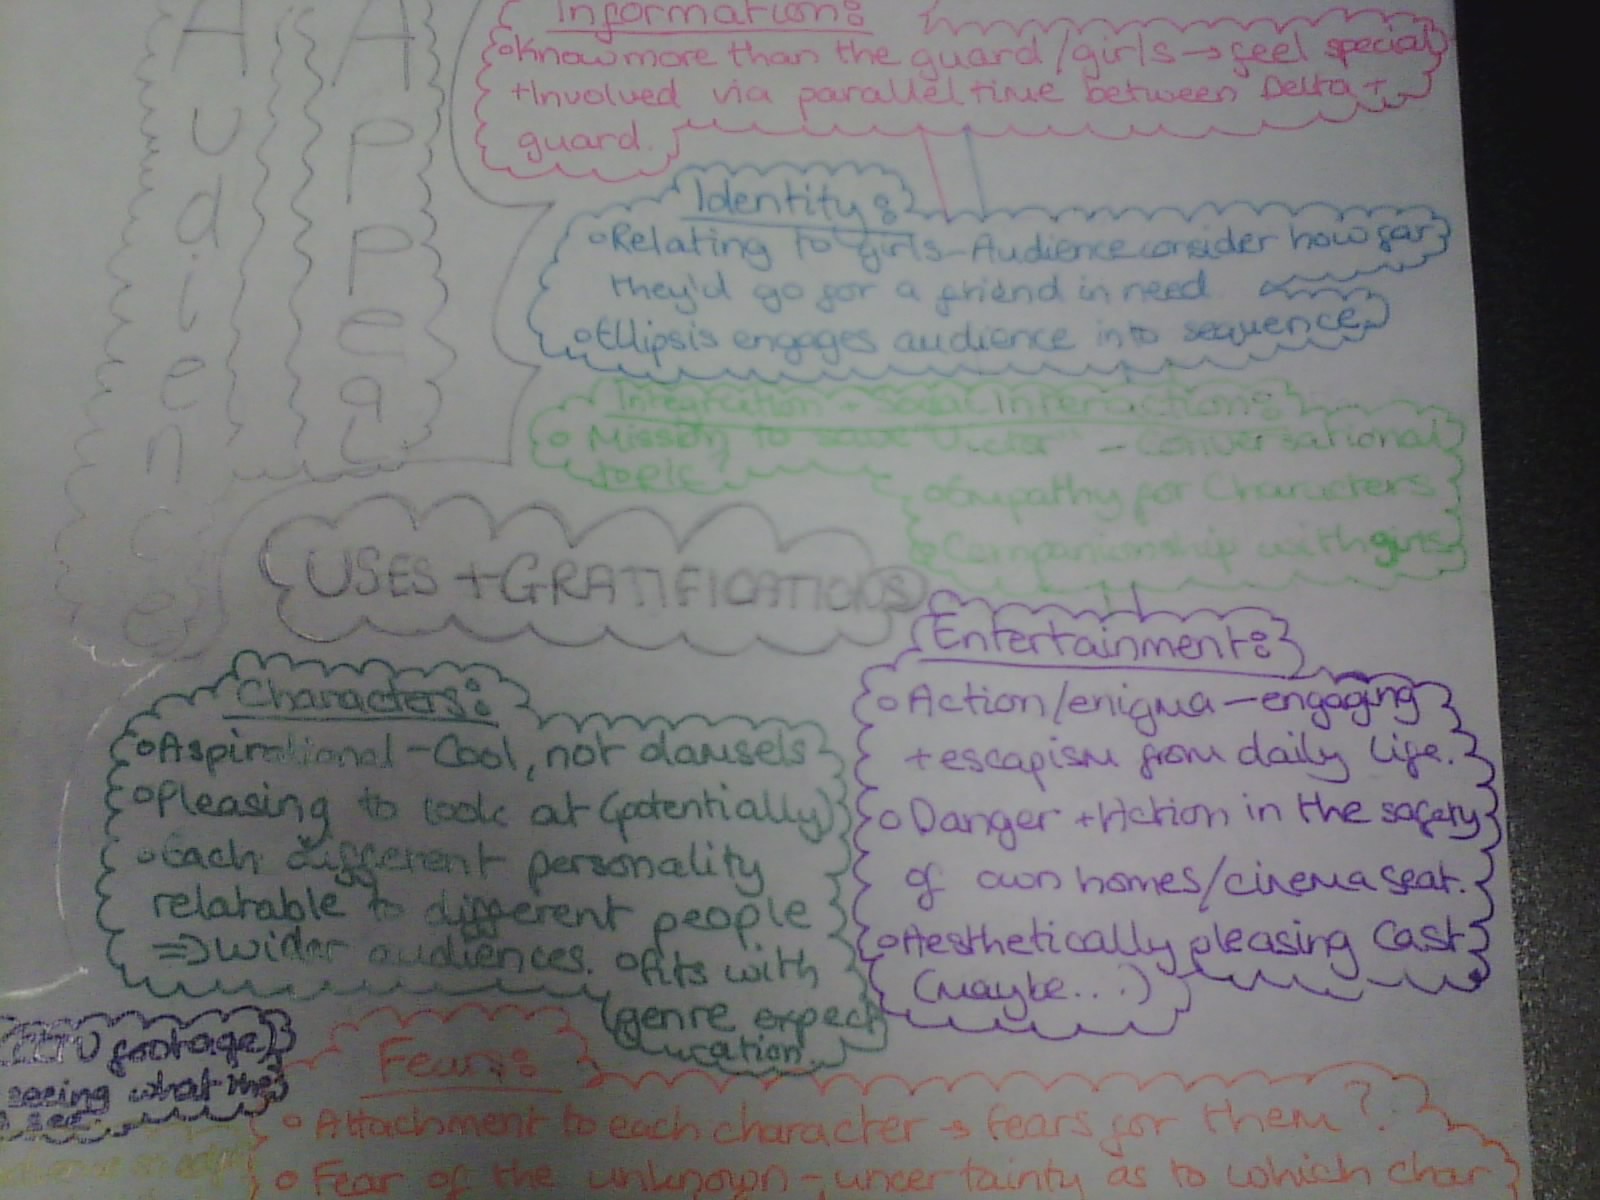 Audience
Appeal
Information:
Know more than the guard/girls → feel special
+Involved via parallel time between Delta +
guard.
Identity:
Relating to girls - Audience consider how far
they'd go for a friend in need
Ellipsis engages audience into sequence
Integration + Social Interaction:
Mission to save "Victor" - Conversational
topic?
Empathy for Characters
Companionship with girls
USES + GRATIFICATIONS
Entertainment:
Action/enigma - engaging
+ escapism from daily life.
Danger + Action in the safety
of own homes/cinema seat.
Aesthetically pleasing cast
(Maybe...)
Characters:
Aspirational - Cool, not damsels
Pleasing to look at (potentially)
Each different personality
relatable to different people
=> wider audiences. Fits with
genre expect
ation.
footage)
seeing what the
see
Fear:
Attachment to each character → fears for them?
Fear of the unknown - uncertainty as to which char